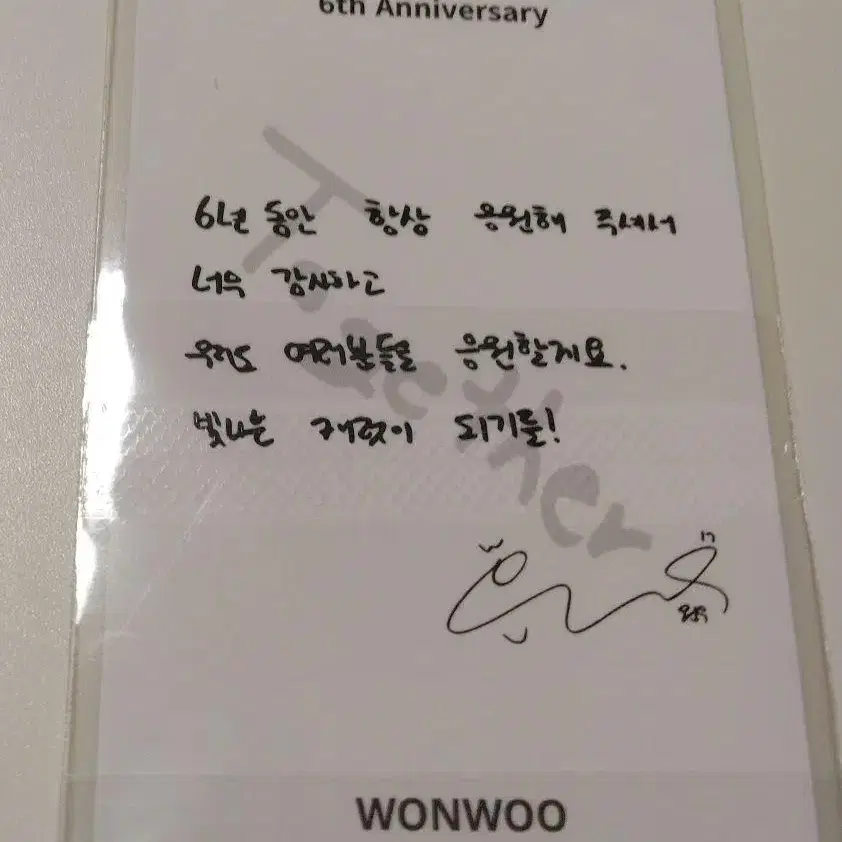 6th Anniversary
6년 동안 항상 응원해 주셔서
너무 감사하고
우리도 여러분들을 응원할게요.
빛나는 캐럿이 되기를!
Together
17
원우
WONWOO